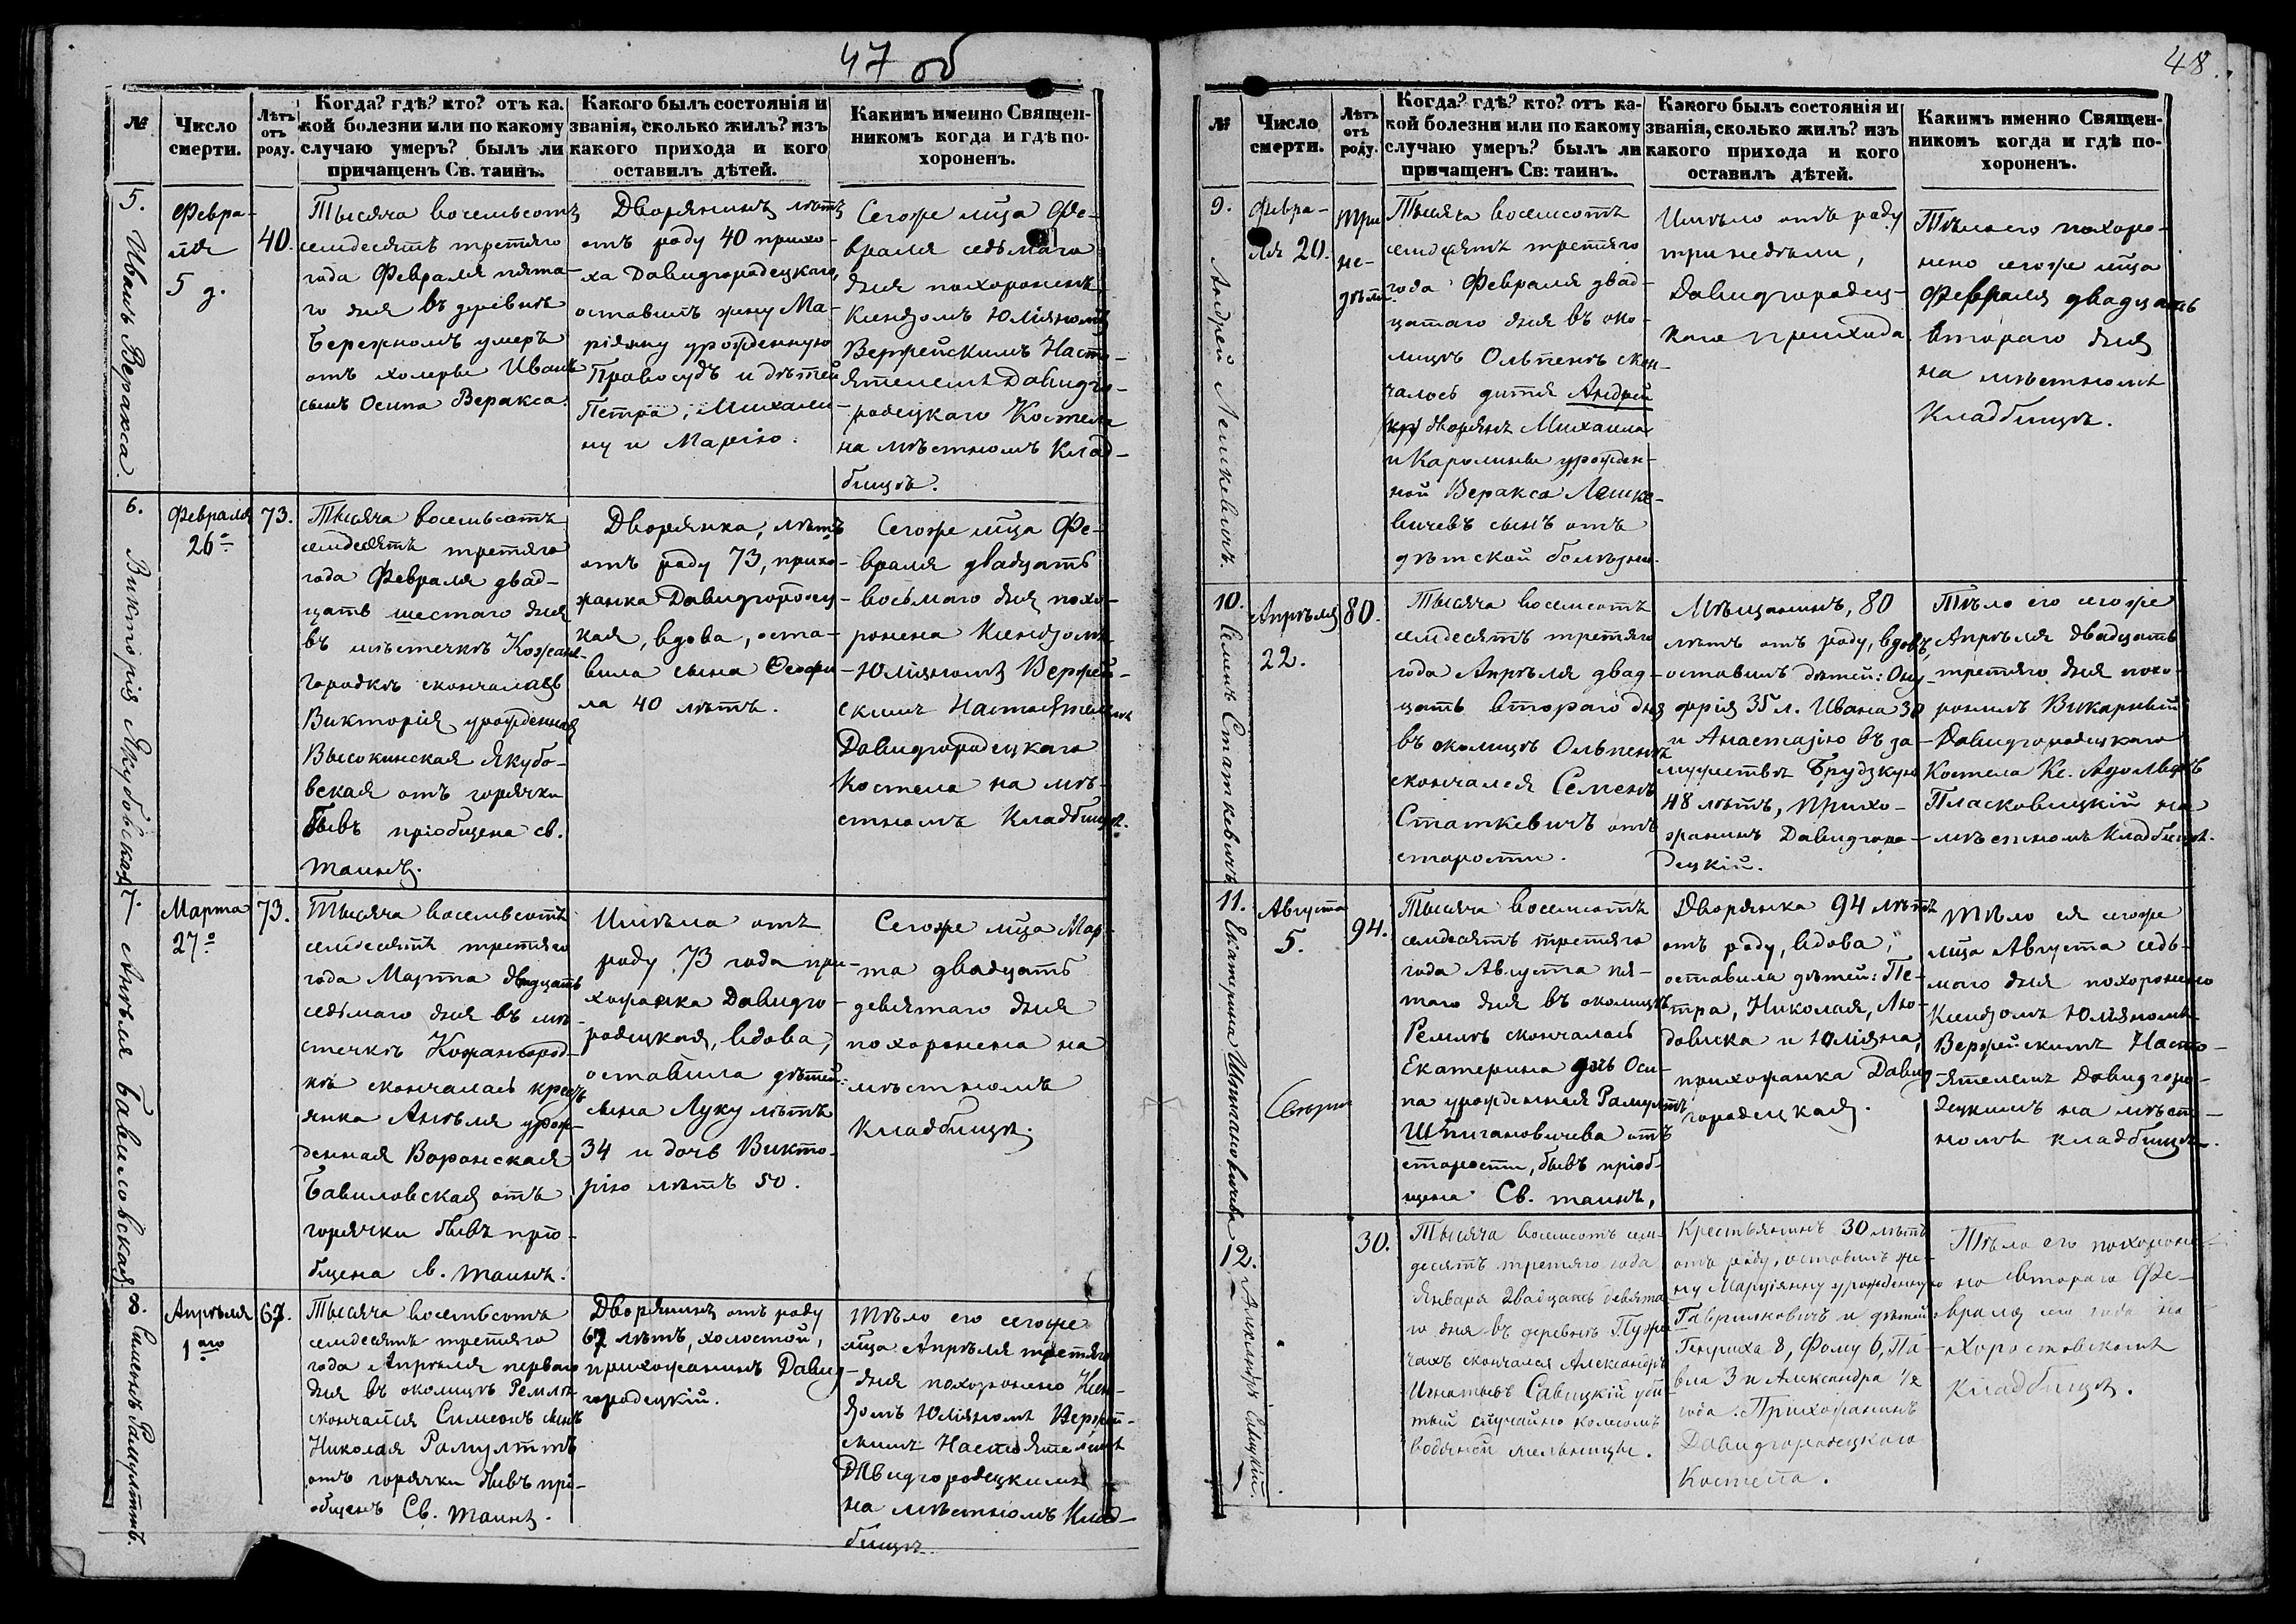 47 об
№
Число
смерти.
Лѣтъ
отъ
роду.
Когда? гдѣ? кто? отъ ка-
кой болезни или по какому
случаю умеръ? былъ ли
причащенъ Св. таинъ.
Какого былъ состоянія и
званія, сколько жилъ? изъ
какого прихода и кого
оставилъ дѣтей.
Каким именно Священ-
никомъ когда и гдѣ по-
хороненъ.
5.
Иванъ Веракса.
Февра-
ля
5 д.
40.
Тысяча восемьсотъ
семдесятъ третяго
года Февраля пята-
го дня въ деревнѣ
Бережномъ умеръ
отъ холеры Иванъ
сынъ Осипа Веракса.
Дворянинъ лѣтъ
отъ роду 40 прихо-
ха Давидгородецкаго,
оставилъ жену Ма-
ріянну урожденную
Правосудъ и дѣтей
Петра, Михали-
ну и Марію.
Сегоже м͠ца Фе-
враля седьмаго
дня похороненъ
Ксендзомъ Юліяномъ
Вержейскимъ Насто-
ятелемъ Давидго-
родецкаго Костела
на мѣстномъ Клад-
бищѣ.
6.
Викторія Якубовская
Февраля
26о
73.
Тысяча восемьсотъ
семдесятъ третяго
года Февраля двад-
цать шестаго дня
въ мѣстечкѣ Кожан-
городкѣ скончалась
Викторія урожденная
Высокинская Якубо-
вская отъ горячки
бывъ пріобщена св.
таинъ.
Дворянка, лѣтъ
отъ роду 73, прихо-
жанка Давидгородец-
кая, вдова, оста-
вила сына Теофи
ла 40 лѣтъ.
Сегоже м͠ца Фе-
враля двадцать
восьмаго дня похо-
ронена Ксендзомъ
Юліяномъ Вержей-
скимъ Настоятелемъ
Давидгородецкаго
Костела на мѣ-
стномъ Кладбищѣ.
7.
Анѣля Бавиловская
Марта
27о
73.
Тысяча восемьсотъ
семдесятъ третяго
года Марта двадцать
седьмаго дня въ мѣ-
стечкѣ Кожангород-
кѣ скончалась крест
янка Анѣля урож-
денная Воронская
Бавиловская отъ
горячки бывъ прі-
общена с. таинъ.
Имѣла отъ
роду 73 года при-
хожанка Давидго-
родецкая, вдова,
оставила дѣтей:
сына Луку лѣтъ
34 и дочь Викто-
рію лѣтъ 50.
Сегоже м͠ца Мар-
та двадцать
девятаго дня
похоронена на
мѣстномъ
кладбищѣ.
8.
Симеонъ Рамултъ.
Апрѣля
1аго
67.
Тысяча восемьсотъ
семдесятъ третяго
года Апрѣля перваго
дня въ околицѣ Ремлѣ
скончался Симеонъ сынъ
Николая Рамултъ
отъ горячки бывъ прі-
общенъ Св. таинъ.
Дворянинъ отъ роду
67 лѣтъ, холостой,
прихожанинъ Давид-
городецкій.
Тѣло его сегоже
м͠ца Апрѣля третяго
дня похоронено Ксен-
дзомъ Юліяномъ Вержей-
скимъ Настоятелемъ
Давидгородецкимъ
на мѣстномъ Клад-
бищѣ.
48.
№
Число
смерти.
Лѣтъ
отъ
роду.
Когда? гдѣ? кто? отъ ка-
кой болезни или по какому
случаю умеръ? былъ ли
причащенъ Св: таинъ.
Какого былъ состоянія и
званія, сколько жилъ? изъ
какого прихода и кого
оставилъ дѣтей.
Какимъ именно Священ-
никомъ когда и гдѣ по-
хороненъ.
9.
Андрей Лешкевичъ.
Февра-
ля 20.
три
не-
дѣли
Тысяча восемсотъ
семдсятъ третяго
года Февраля двад-
цатаго дня въ око-
лицѣ Ольпенѣ скон-
чалось дитя Андрей
дворянъ Михаила
и Каролины урожден-
ной Веракса Лешке-
вичевъ сынъ отъ
дѣтской болѣзни.
Имѣло отъ роду
три недѣли,
Давидгородец-
каго прихода
Тѣло его похоро-
нено сегоже м͠ца
Февраля двадцать
втораго дня
на мѣстномъ
Кладбищѣ.
10.
Семенъ Статкевичъ
Апрѣля
22.
80.
Тысяча восемсотъ
семдесятъ третяго
года Апрѣля двад-
цать втораго дня
въ околицѣ Ольпенѣ
скончался Семенъ
Статкевичъ отъ
старости.
Мѣщанинъ, 80
лѣтъ отъ роду, вдовъ,
оставилъ дѣтей: Ону-
фрія 35 л. Ивана 30
и Анастазію въ за-
мужествѣ Брудзкую
48 лѣтъ, прихо-
жанинъ Давидгоро-
децкій.
Тѣло его сегоже
Апрѣля двадцать
третяго дня похо-
ронилъ Викарный
Давидгородецкаго
Костела Кс. Адольфъ
Пласковицкій на
мѣстномъ Кладбищѣ.
11.
Екатерина Шпигановичева
Августа
5.
94.
Тысяча восемсотъ
семдесятъ третяго
года Августа пя-
таго дня въ околицѣ
Ремлѣ скончалась
Екатерина дочь Оси-
па урожденная Рамултъ
Шпигановичева отъ
старости, бывъ пріоб-
щена Св. таинъ,
Дворянка 94 лѣтъ
отъ роду, вдова,
оставила дѣтей: Пе-
тра, Николая, Лю-
довика и Юліяна,
прихожанка Давид-
городецкая.
Тѣло ея сегоже
м͠ца Августа седь-
маго дня похоронено
Ксендзомъ Юліяномъ
Вержейскимъ Насто-
ятелемъ Давидгоро-
децкимъ на мѣст-
номъ кладбищѣ.
12.
Александръ Савицкій.
30.
Тысяча восемсотъ сем-
десятъ третяго года
Января двадцать девята
го дня въ деревнѣ Пузи-
чахъ скончался Александръ
Игнатьевъ Савицкій уби
тый случайно колесомъ
водяной мельницы.
Крестьянинъ 30 лѣтъ
отъ роду, оставилъ же-
ну Марціянну урожденную
Гаврилковичъ и дѣтей
Генриха 8, Фому 6, Па-
вла 3 и Александра 1/2
года. Прихожанинъ
Давидгородецкаго
Костела.
Тѣло его похороне
но втораго Фе-
враля сего года на
Хоростовскомъ
кладбищѣ.